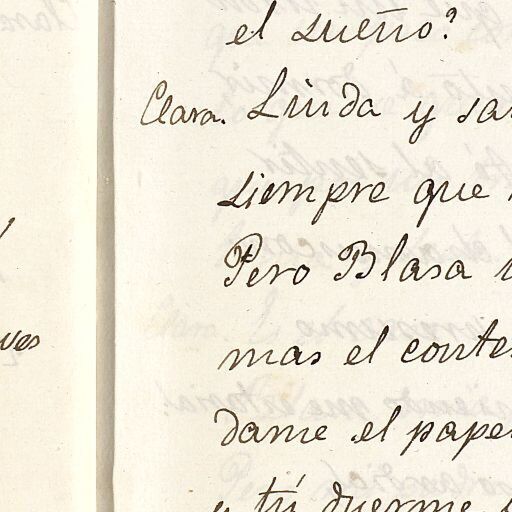 el sueño?
Clara. Linda y
siempre que
Pero Blasa
mas el
dame el
y tú duerme